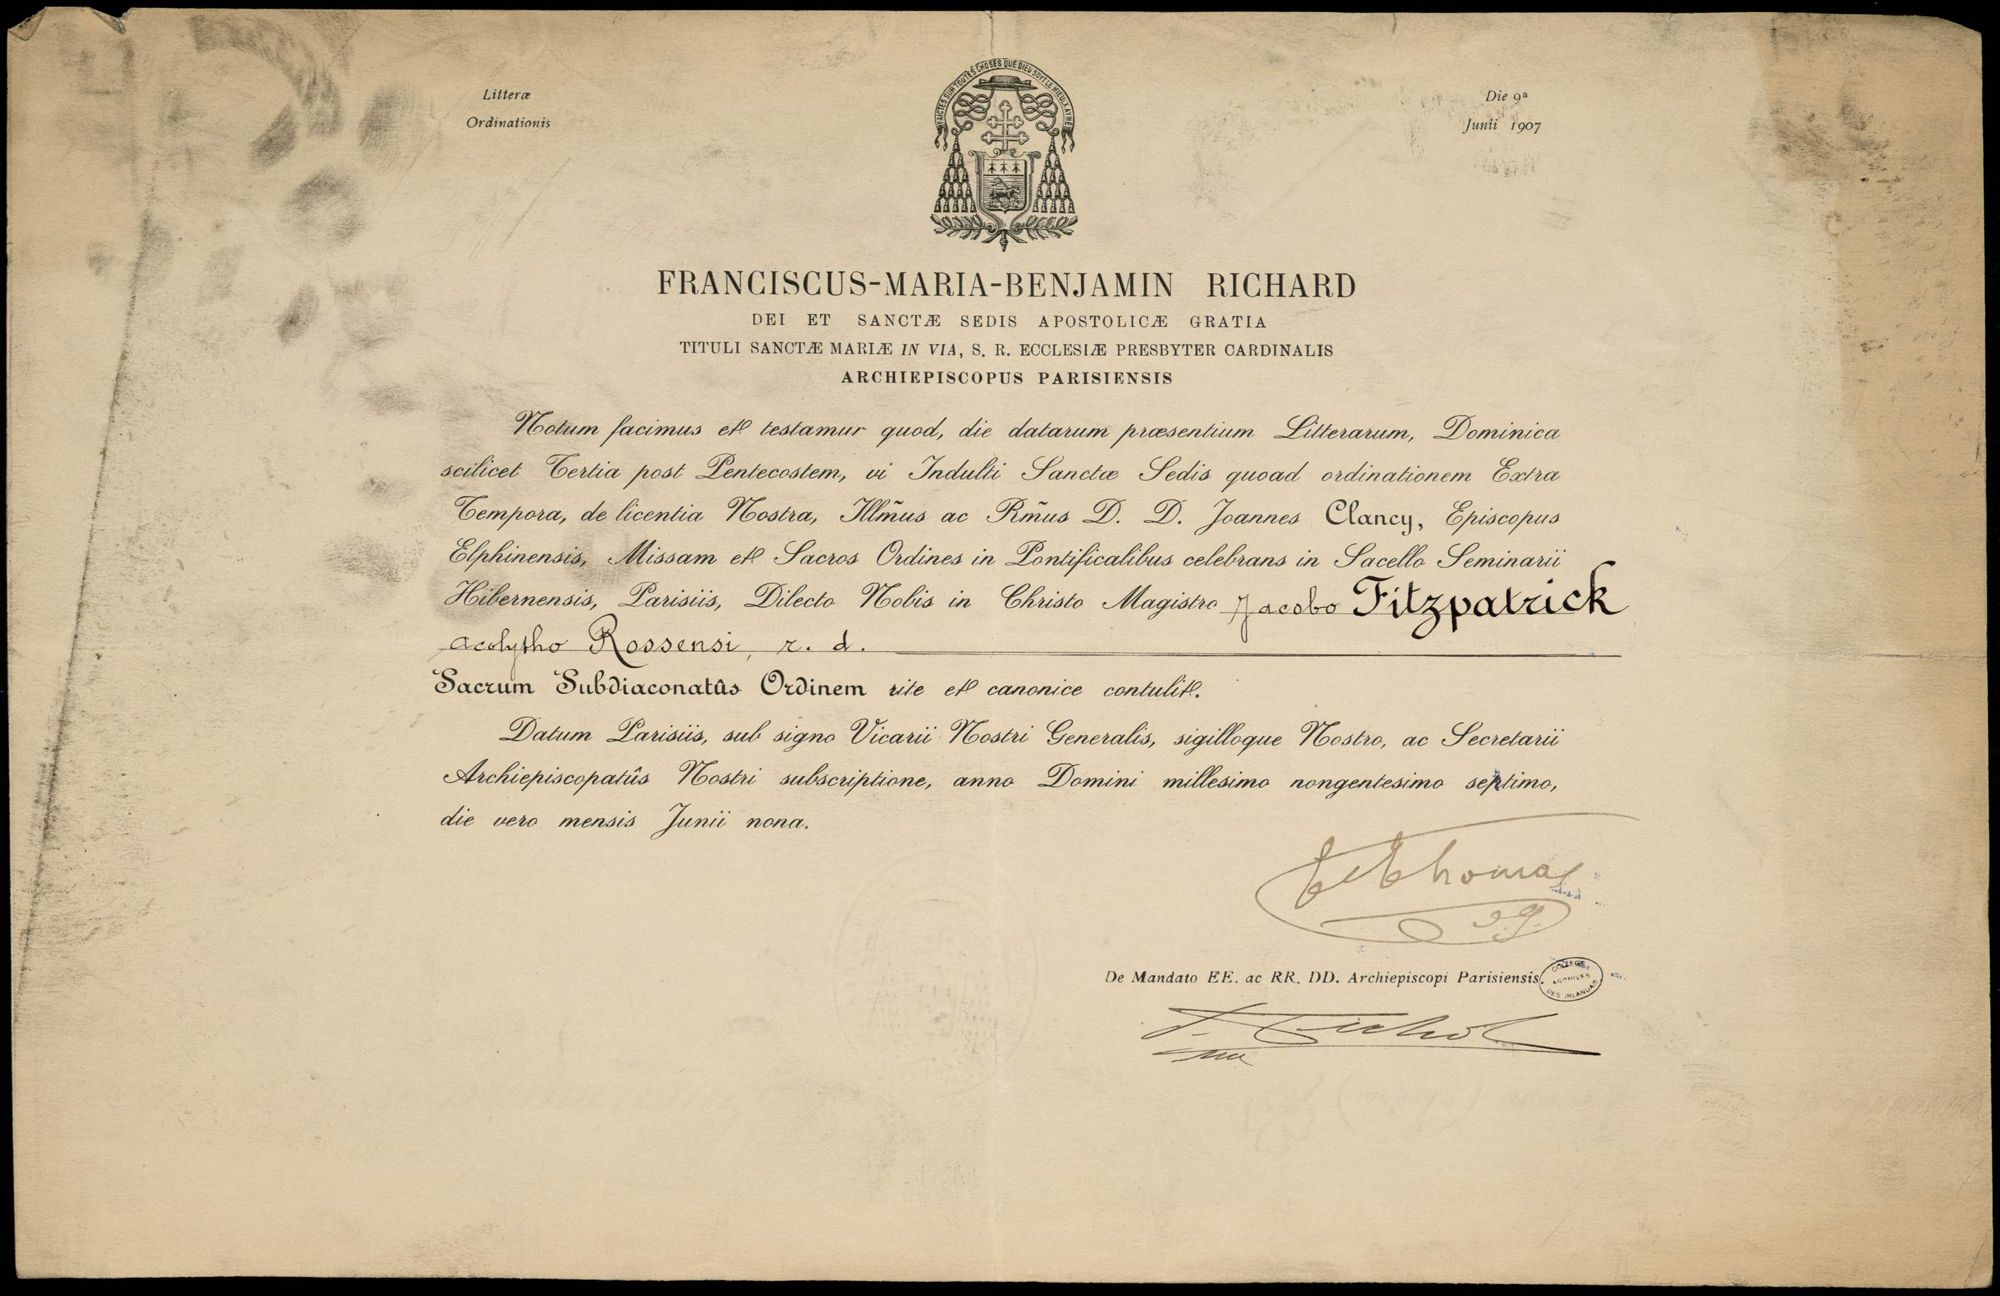 Litteræ
Ordinationis
Die 9ª
Junii 1907
FAICTES SUR TOUTES CHOSES QUE DIEU SOIT LE MIEULX AYMÉ
FRANCISCUS-MARIA-BENJAMIN RICHARD
DEI ET SANCTÆ SEDIS APOSTOLICÆ GRATIA
TITULI SANCTÆ MARIÆ IN VIA, S. R. ECCLESIÆ PRESBYTER CARDINALIS
ARCHIEPISCOPUS PARISIENSIS
Notum facimus et testamur quod, die datarum præsentium Litterarum, Dominica
scilicet Tertia post Pentecostem, vi Indulti Sanctæ Sedis quoad ordinationem Extra
Tempora, de licentia Nostra, Illm̃us ac Rm̃us D. D. Joannes Clancy, Episcopus
Elphinensis, Missam et Sacros Ordines in Pontificalibus celebrans in Sacello Seminarii
Hibernensis, Parisiis, Dilecto Nobis in Christo Magistro Jacobo Fitzpatrick
acolytho Rossensi, r. d.
Sacrum Subdiaconatûs Ordinem rite et canonice contulit.
Datum Parisiis, sub signo Vicarii Nostri Generalis, sigilloque Nostro, ac Secretarii
Archiepiscopatûs Nostri subscriptione, anno Domini millesimo nongentesimo septimo,
die vero mensis Junii nona.
Thomas
v g.
De Mandato EE. ac RR. DD. Archiepiscopi Parisiensis
COLLEGE
ARCHIVES
DES IRLANDAIS